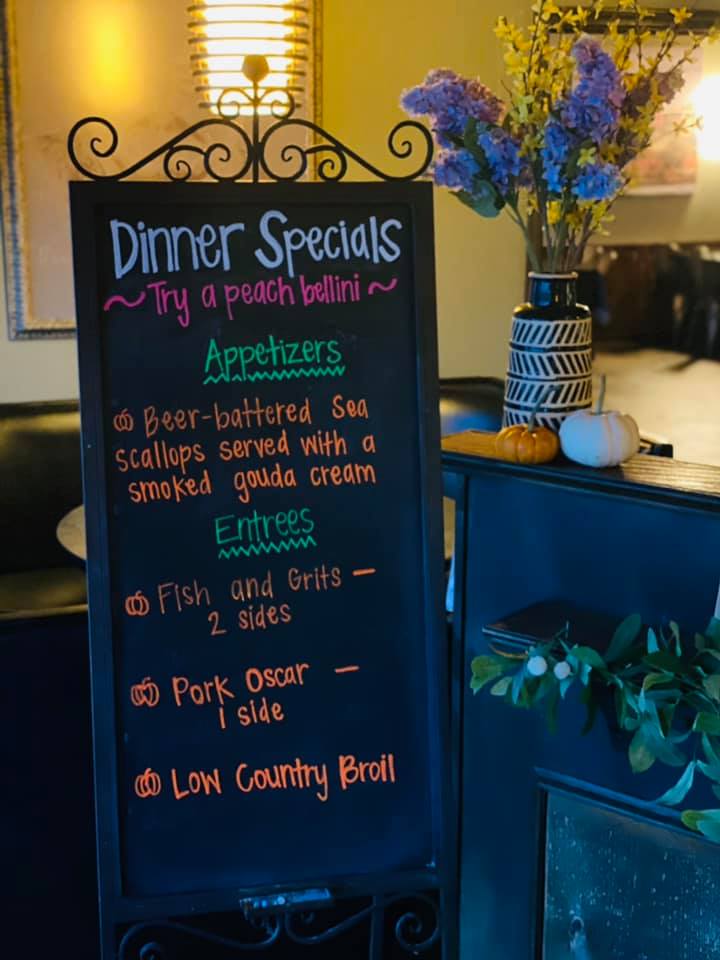 Dinner Specials
~Try a peach bellini~
Appetizers
Beer-battered Sea
scallops served with a
smoked gouda cream
Entrees
Fish and Grits —
2 sides
Pork Oscar —
1 side
Low Country Broil